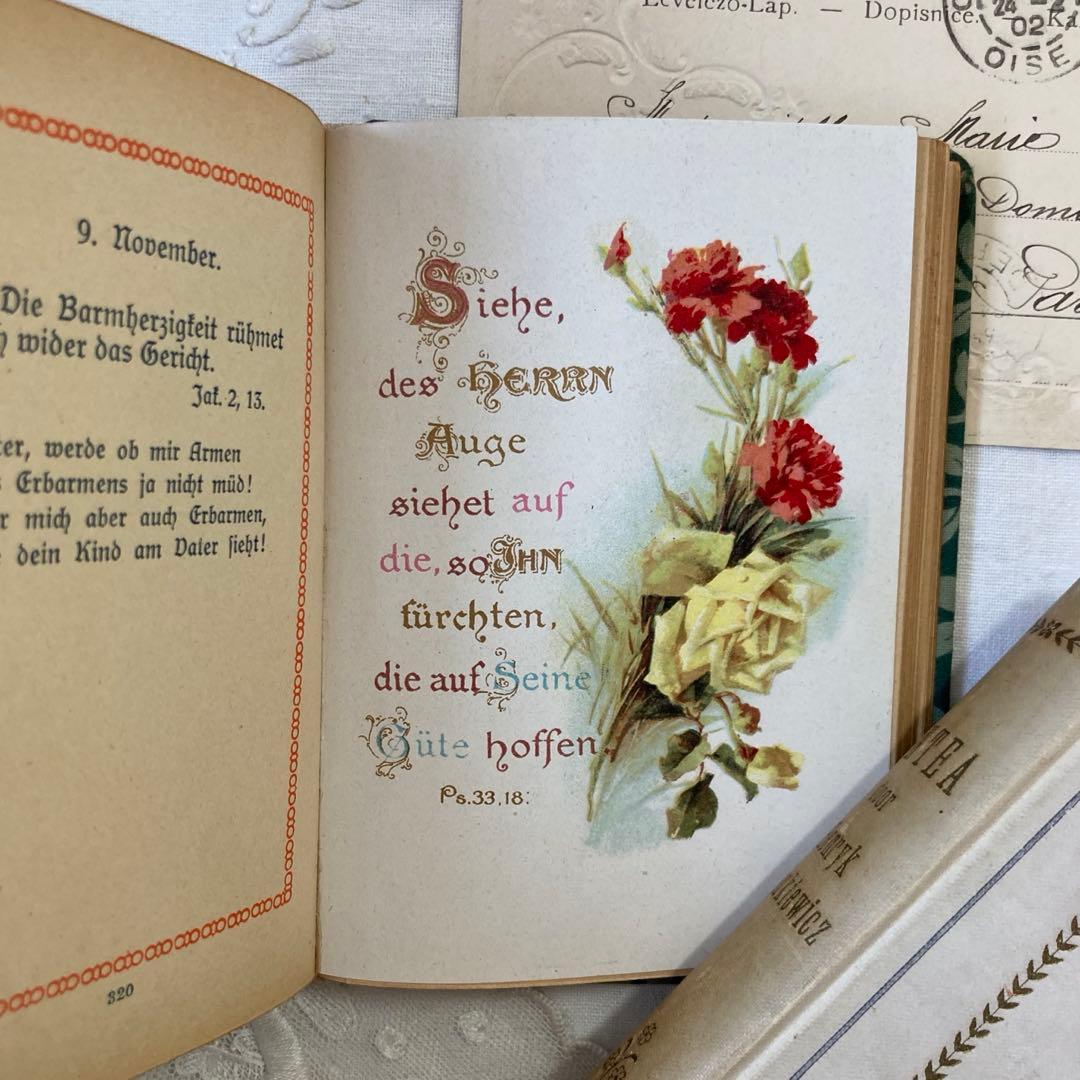 9. November.
Die Barmherzigkeit rühmet
wider das Gericht.
Jak. 2, 13.
werde ob mir Armen
Erbarmens ja nicht müd!
mich aber auch Erbarmen,
dein Kind am Vater sieht!
320
Siehe,
des HERRN
Auge
siehet auf
die, so IHN
fürchten,
die auf Seine
Güte hoffen.
Ps. 33, 18.
Levelezö-Lap. — Dopisnice.
24
02
OISE
Marie